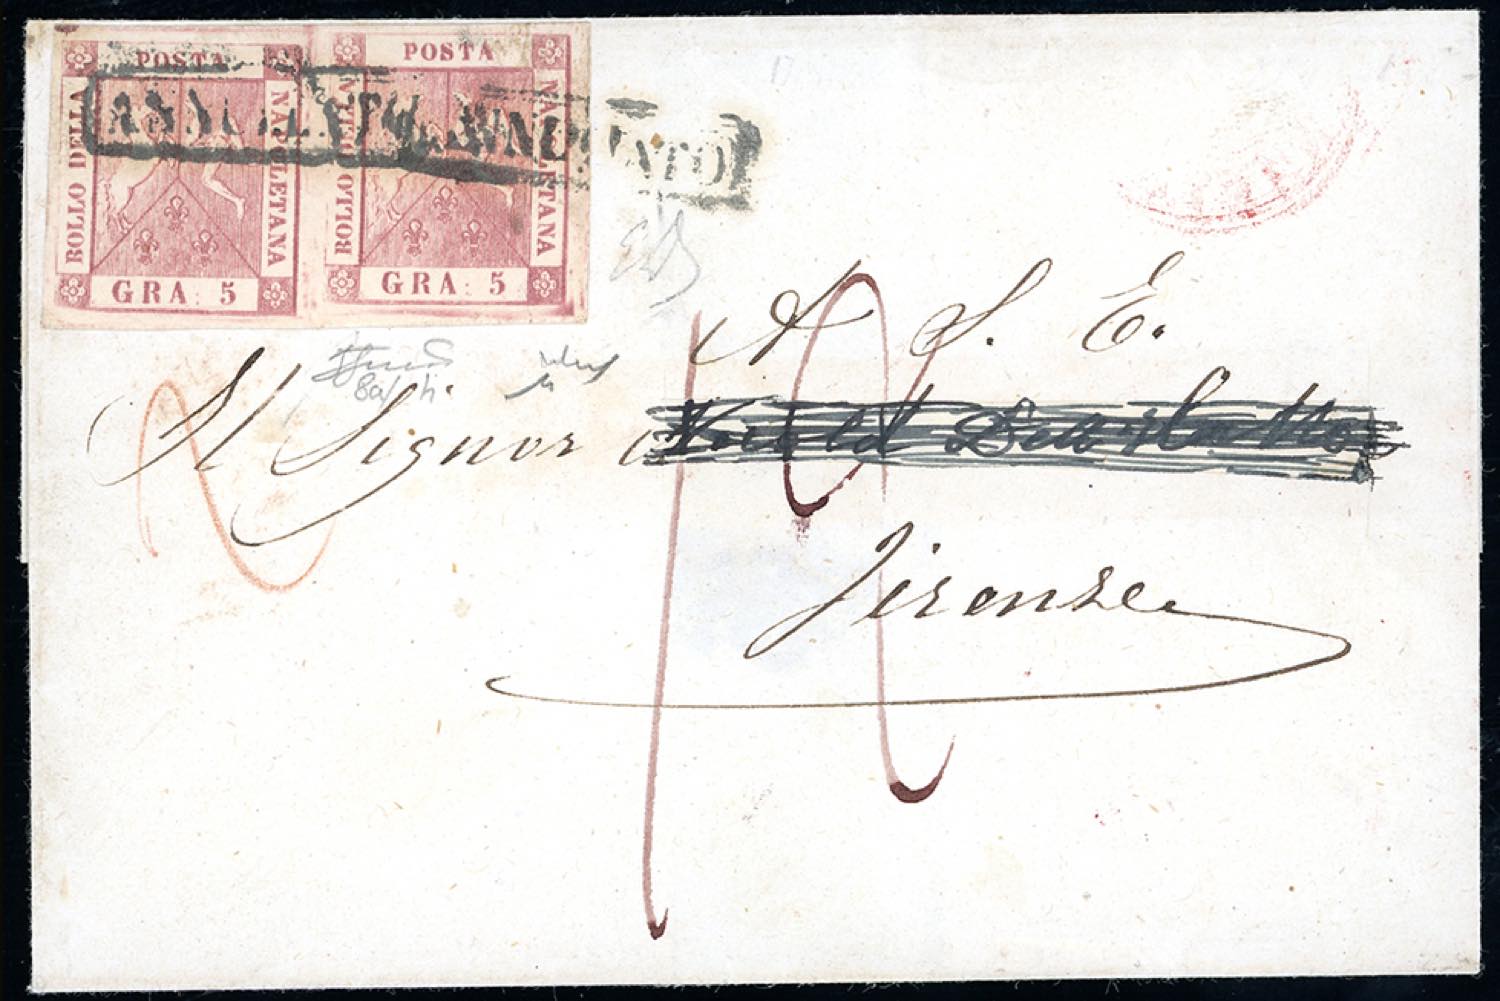 POSTA
BOLLO DELLA
NAPOLETANA
GRA: 5
POSTA
BOLLO DELLA
NAPOLETANA
GRA: 5
ANNULLATO
ANNULLATO
A S. E.
Il Signor
Firenze
2
12